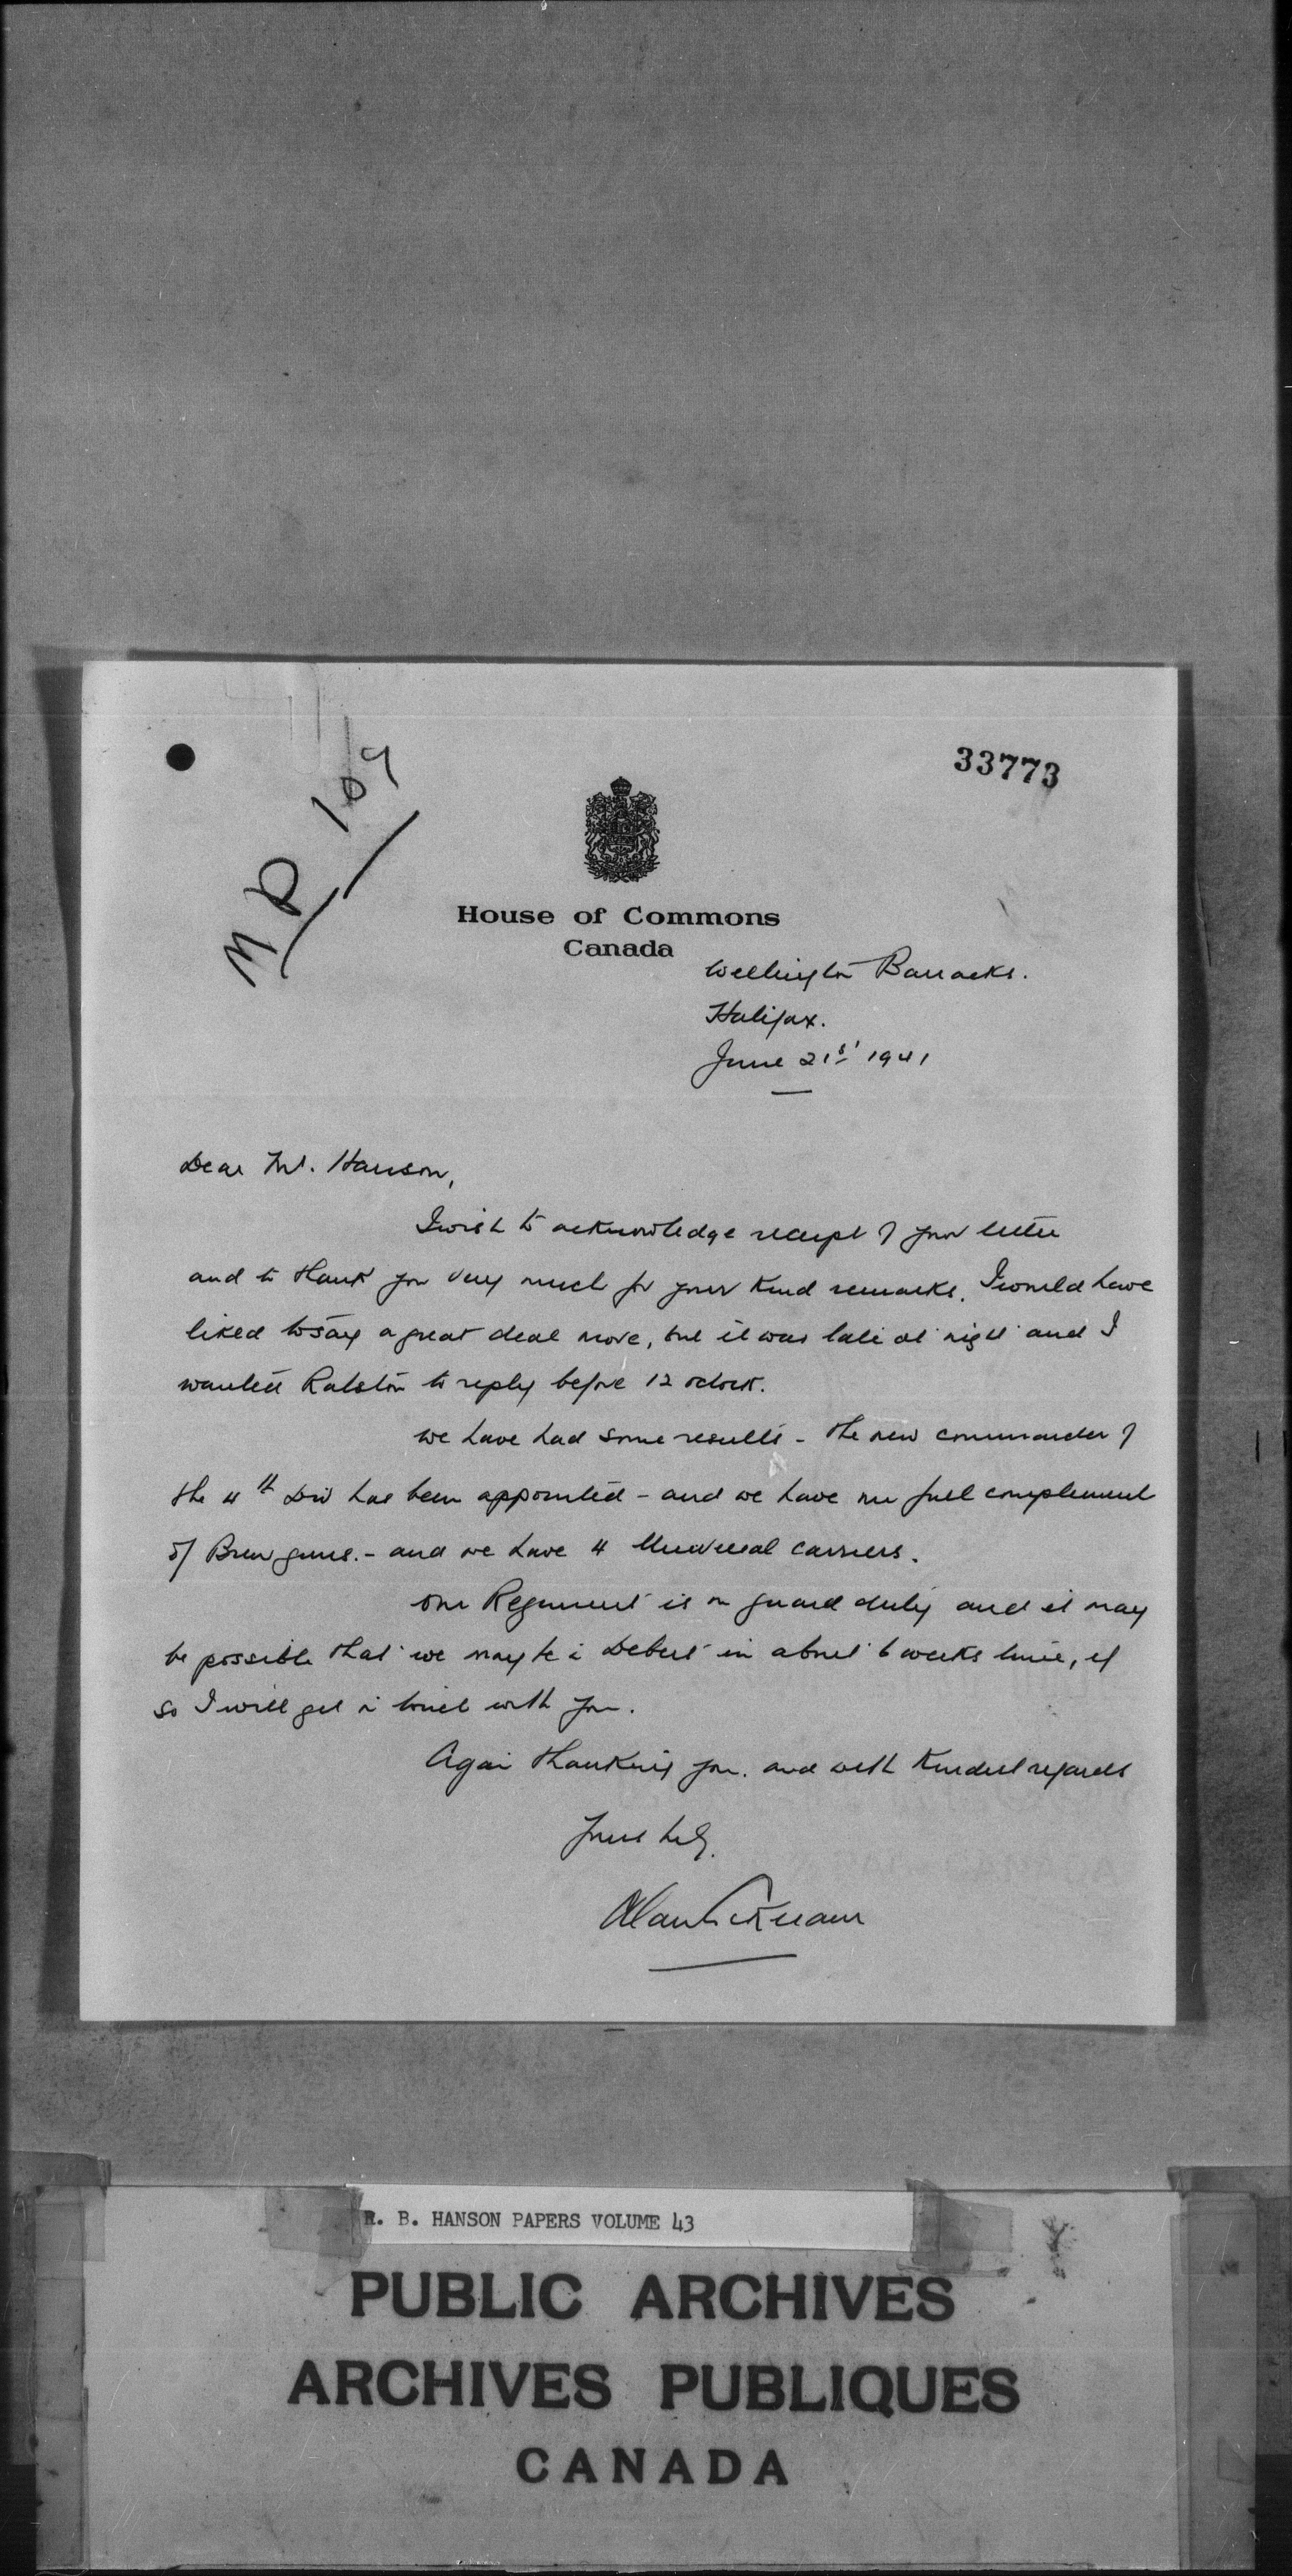 33773
M P 109
House of Commons
Canada
Wellington Barracks.
Halifax.
June 21st 1941
Dear Mr. Hanson,
I wish to acknowledge receipt of your letter
and to thank you very much for your kind remarks. I would have
liked to say a great deal more, but it was late at night and I
wanted Ralston to reply before 12 oclock.
We have had some results - the new commander of
the 4th Div has been appointed - and we have our full complement
of Bren guns. - and we have 4 Universal carriers.
Our Regiment is on guard duty and it may
be possible that we may be in Debert in about 6 weeks time, if
so I will get in touch with you.
Again thanking you. and with kindest regards
Yours
Alan Cockeram
R. B. HANSON PAPERS VOLUME 43
PUBLIC ARCHIVES
ARCHIVES PUBLIQUES
CANADA